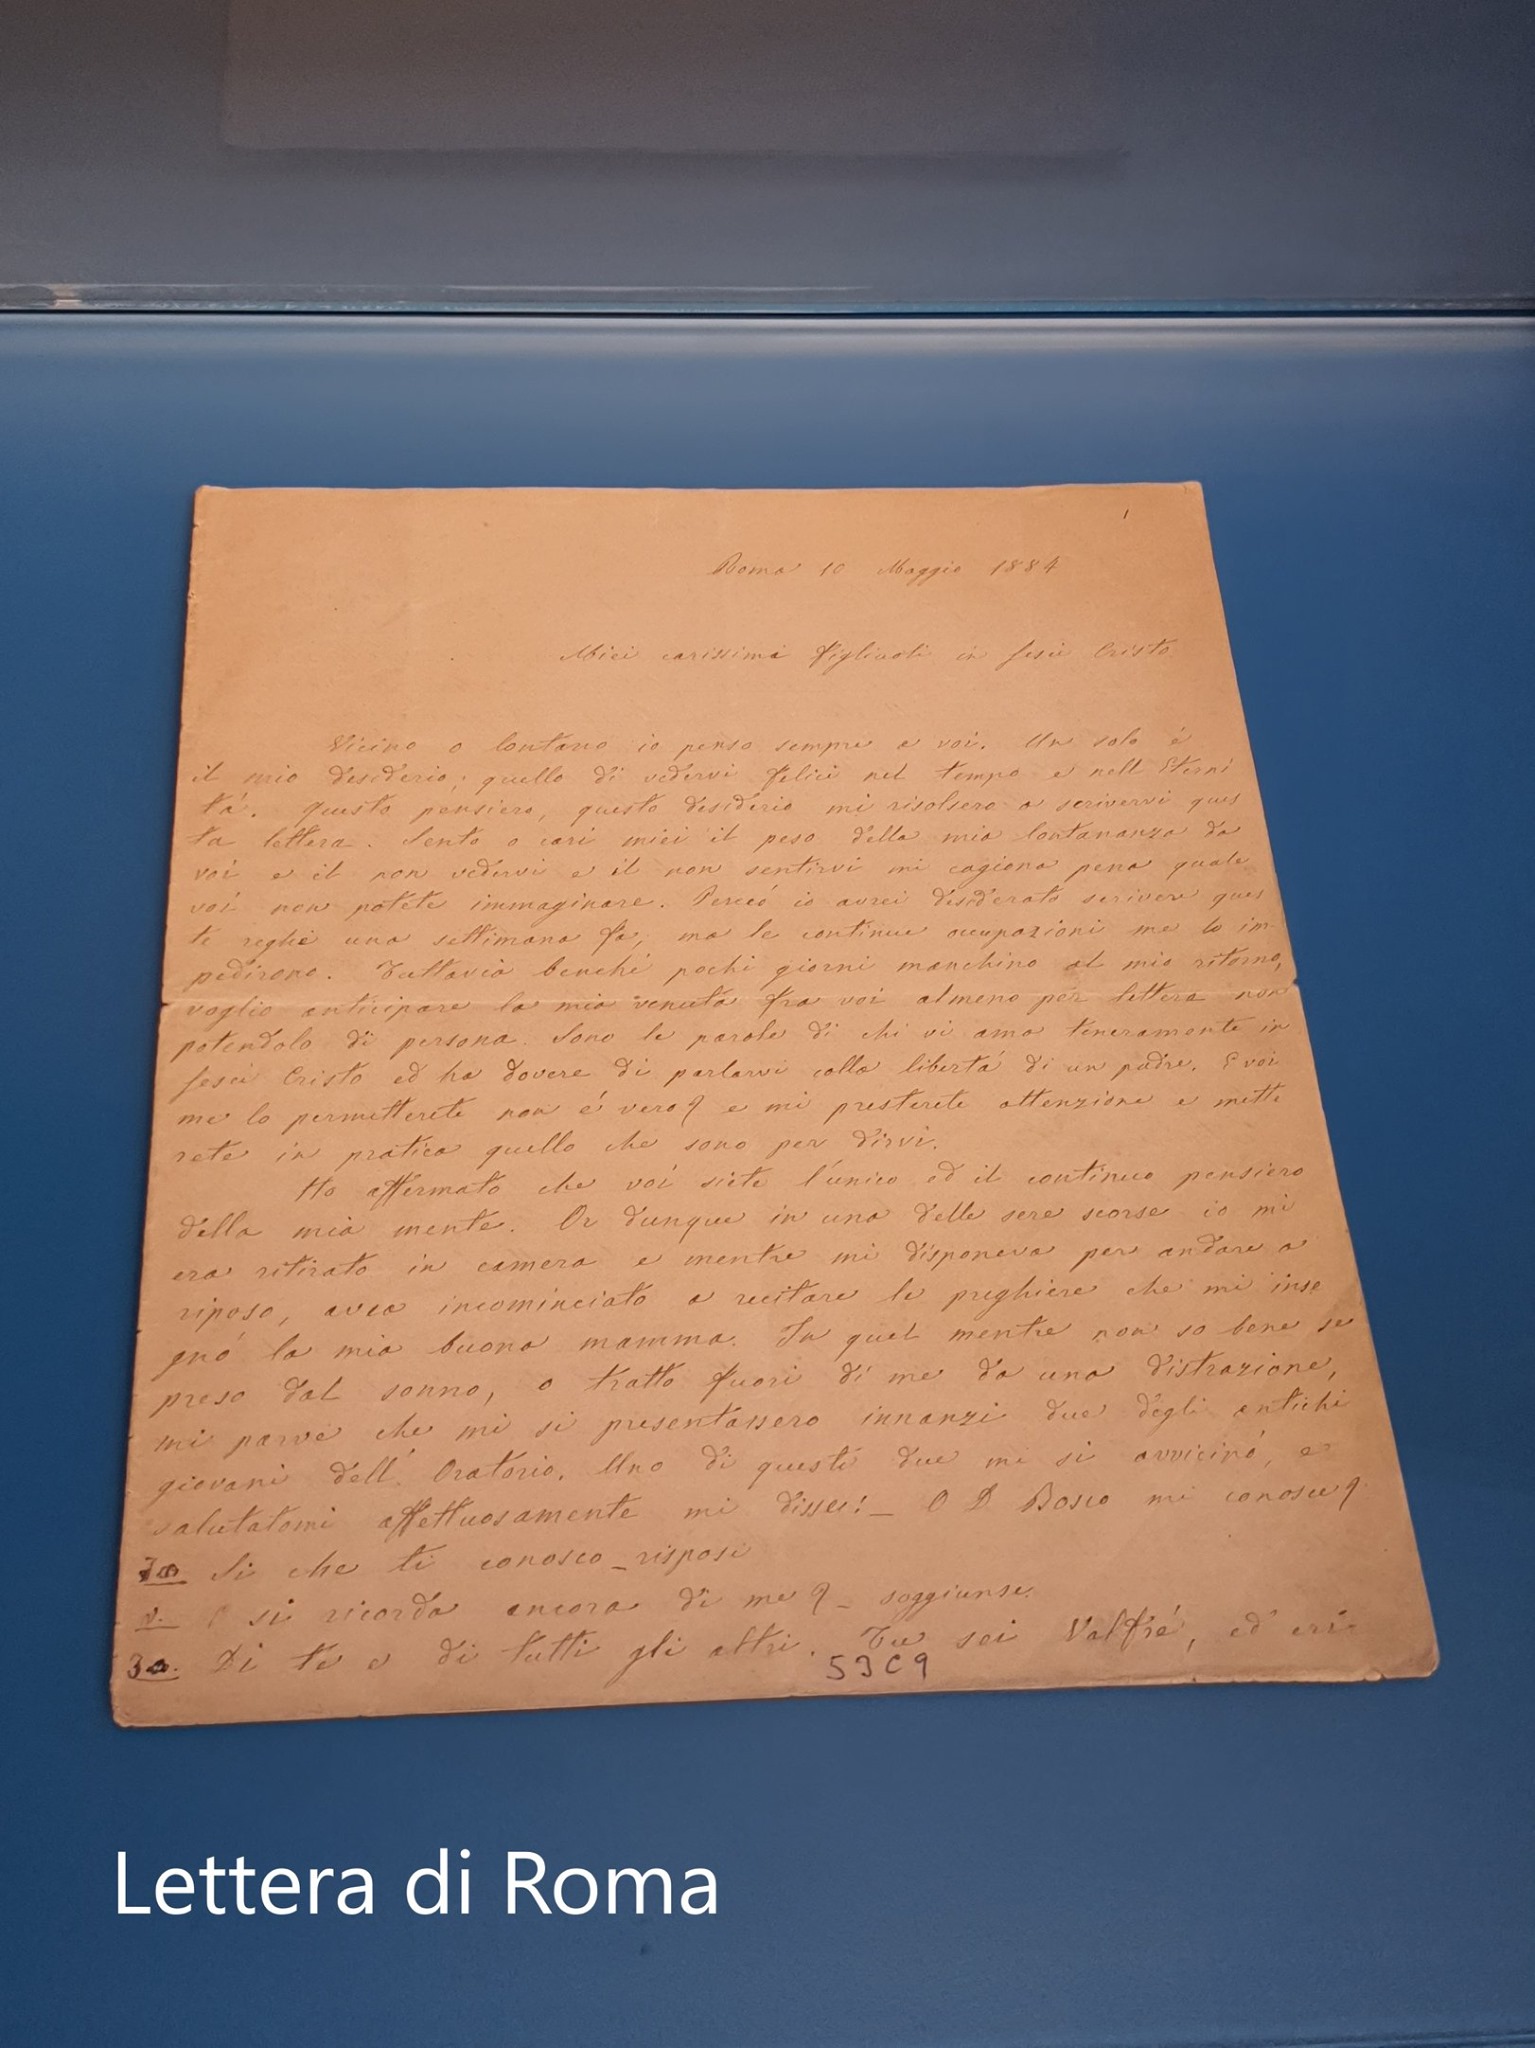 1
Roma 10 Maggio 1884
Miei carissimi figliuoli in Gesù Cristo.
Vicino o lontano io penso sempre a voi. Un solo é
il mio desiderio; quello di vedervi felici nel tempo e nell Eterni
tá. Questo pensiero, questo desiderio mi risolsero a scrivervi ques
ta lettera. Sento o cari miei il peso della mia lontananza da
voi e il non vedervi e il non sentirvi mi cagiona pena quale
voi non potete immaginare. Perció io avrei desiderato scrivere ques
te reghe una settimana fa, ma le continue occupazioni me lo im
pedirono. Tuttavia benché pochi giorni manchino al mio ritorno,
voglio anticipare la mia venuta fra voi almeno per lettera non
potendolo di persona. Sono le parole di chi vi ama teneramente in
Gesù Cristo ed ha dovere di parlarvi colla libertá di un padre. E voi
me lo permetterete non é vero? e mi presterete attenzione e mette
rete in pratica quello che sono per dirvi.
Ho affermato che voi siete l'unico ed il continuo pensiero
della mia mente. Or dunque in una delle sere scorse io mi
era ritirato in camera e mentre mi disponeva per andare a
riposo, avea incominciato a recitare le preghiere che mi inse
gnó la mia buona mamma. In quel mentre non so bene se
preso dal sonno, o tratto fuori di me da una distrazione,
mi parve che mi si presentassero innanzi due degli antichi
giovani dell' Oratorio. Uno di questi due mi si avvicinó, e
salutatomi affettuosamente mi disse: _ O D Bosco mi conosce?
Si che ti conosco _ risposi
v. E si ricorda ancora di me? _ soggiunse.
Di te e di tutti gli altri. Tu sei Valfré, ed eri
53C9
Lettera di Roma